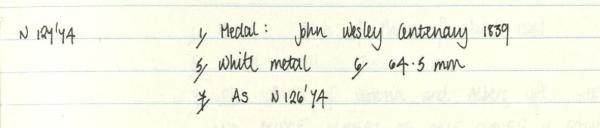 N 127'Y4 1, Medal: John Wesley Centenary 1839
5, White metal 6, 64.5 mm
7, As N126'Y4